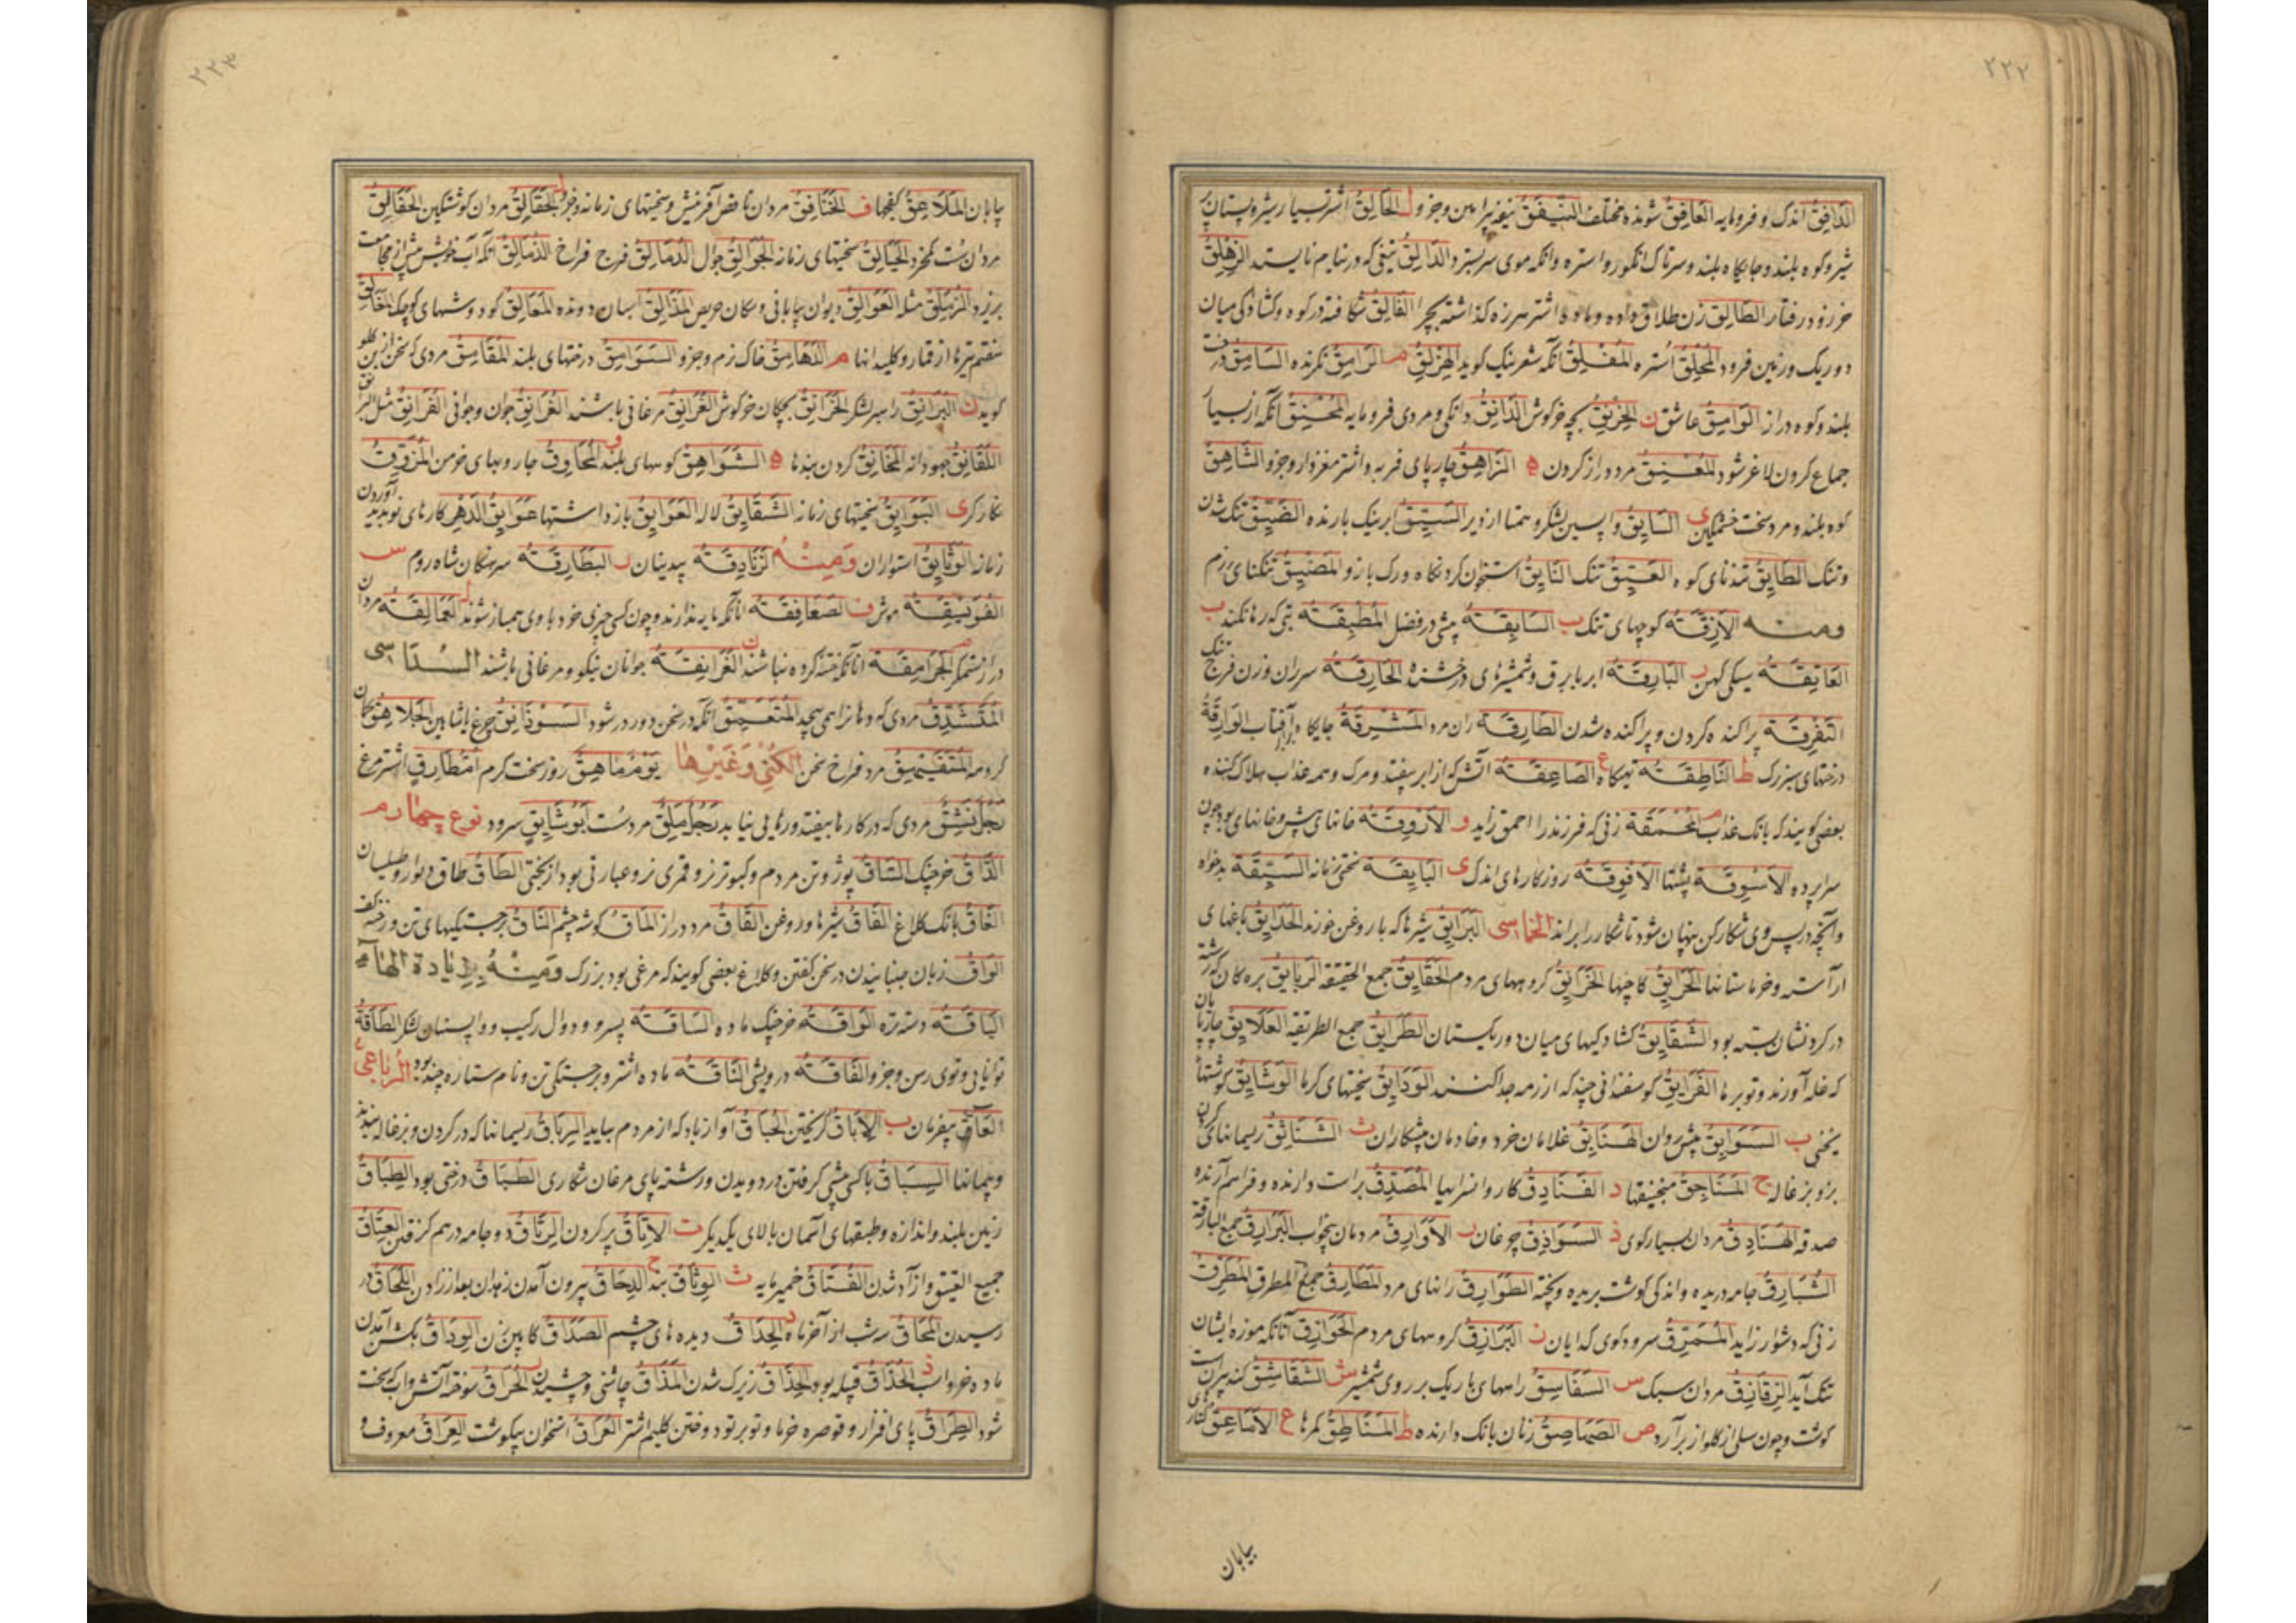 ۲۲۲
الدَافِقُ اندک و فرومایه العَافِقُ شونده مختلف
شیر و کوه بلند و جایگاه بلند و سرتاک انگور و استره و انکه موی سر بسترد الدَالِقُ تیغی که در نیام نایستد الزِهْلِقُ
خر زود رفتار الطَالِقُ زن طلاق داده و ماده اشتر هرزه گذاشته بچرا الفَالِقُ شکافته در کوه و کشادگی میان
دو ریک و زمین فرود المُحْلِقُ استره المُفْلِقُ آنکه شعر نیک گوید الهِزْلِقُ م الرَامِقُ نگرنده السَامِقُ درخت
بلند و کوه دراز الوَامِقُ عاشق ن الخِرْنِقُ بچه خرگوش الدَانِقُ دانگی و مردی فرومایه المُحْنِقُ آنکه از بسیار
جماع کردن لاغر شود المُعْنِقُ مرد دراز گردن ه الزَاهِقُ چارپای فربه و اشتر مغزدار و جزو الشَاهِقُ
کوه بلند و مرد سخت خشمگین ی السَایِقُ واپسین لشکر و همتا از دیر السَیِّقُ ابر نیک بارنده الضَیِّقُ تنک شدن
و تنک الطَایِقُ تندنای کوه العَیِّقُ تنک النَایِقُ استخوان گردنگاه و رک بازو المَضِیْقُ تنگنای رزم
ومنه الأَزِقَّةُ کوچهای تنک ب السَابِقَةُ پیشی در فضل المُطْبِقَةُ تبی که رها نکند ت
العَاتِقَةُ سیکی کهن ر البَارِقَةُ ابر با برق و شمشیرهای درخشنده الحَارِقَةُ سرران و زن فرج تنک
التَفْرِقَةُ پراکنده کردن و پراکنده شدن الطَارِقَةُ ران مرد المَشْرِقَةُ جایگاه برآفتاب الوَارِقَةُ
درختهای بزرک ط النَاطِقَةُ تهیگاه ع الصَاعِقَةُ آتش که از ابر بیفتد و مرک و همه عذاب هلاک کننده
بعضی گویند که بانک عذاب م المُحْمِقَةُ زنی که فرزند را احمق زاید و الأَرْوِقَةُ خانهای پیش و خانهای بود چون
سراپرده الأَسْوِقَةُ پشتها الأَفْوِقَةُ روزکارهای اندک ی البَایِقَةُ سختی زمانه السَیِّقَةُ بدخواه
و آنچه در پس وی شکار کن پنهان شود تا شکار را براند الخماسی البَرَایِقُ شیرها که با روغن خورند الحَدَایِقُ باغهای
آراسته و خرماستانها الحَرَایِقُ کاچیها الحَزَایِقُ گروههای مردم الحَقَایِقُ جمع الحقیقه الرَبَایِقُ بره کان که رشته
در گردنشان بسته بود الشَقَایِقُ کشادگیهای میان دو ریکستان الطَرَایِقُ جمع الطریقه العَلَایِقُ چارپایان
که غله آورند و توبرها الفَرَایِقُ کوسفندانی چند که از رمه جدا کنند الوَدَایِقُ سختیهای گرما الوَشَایِقُ گوشتها
یخنی ب السَوَابِقُ پیش روان الهَنَابِقُ غلامان خرد و خادمان پیشکاران ث الشَنَاثِقُ ریسمانهای گردن
بز و بزغاله ج المَنَاجِقُ منجنیقها د الفَنَادِقُ کاروانسراها المُصَدِّقُ براست دارنده و فراهم آرنده
صدقه الهَنَادِقُ مردان بسیار گوی ذ السَوَاذِقُ چرغان ر الأَوَارِقُ مردمان بیخواب البَوَارِقُ جمع البارقة
الشُبَارِقُ جامه دریده و اندکی گوشت بریده و پخته الطَوَارِقُ رانهای مرد المَطَارِقُ جمع المطرق المُطَرِّقُ
زنی که دشوار زاید المُمَرِّقُ سرودگوی گدایان ز البَرَازِقُ گروههای مردم الحَوَازِقُ آنانکه موزه ایشان
تنک آید الزَقَازِقُ مردان سبک س السَفَاسِقُ راههای باریک بر روی شمشیر ش الشَقَاشِقُ
گوشت و چون سلی از گلو برآرد ص الصَهَاصِقُ زنان بانک دارنده ط المَنَاطِقُ کمرها ع الأَمَاعِقُ
بیابان
۲۲۳
بیابان المَلَاعِقُ کفچها ف الخَنَافِقُ مردان ناقص آفرینش و سختیهای زمانه و جزو ل الحَقَالِقُ مردان
مردان سست کم خرد الخَیَالِقُ سختیهای زمانه الجَوَالِقُ جوال الدُمَالِقُ فرج فراخ الذُمَالِقُ آنکه آب خویش پیش از مجامعت
بریزد الزُمَلِقُ مثله العَوَالِقُ دیوان بیابانی و سگان حریص المَذَالِقُ اسبان دونده المَعَالِقُ کود دوشهای کوچک المَغَالِقُ
هفتم تیرها از قمار و کلیدانها م الدَهَامِقُ خاک نرم و جزو السَوَامِقُ درختهای بلند المُقَامِقُ مردی که سخن از بن گلو
گوید ن البَرَانِقُ راهبر لشکر الخَرَانِقُ بچکان خرگوش الغَرَانِقُ مرغانی باشند الغُرَانِقُ جوان و جوانی الفُرَانِقُ مثل
اللَقَانِقُ جهودانه المَخَانِقُ گردن بندها ه الشَوَاهِقُ کوههای بلند و المَحَاوِقُ جاروبهای خرمن المُزَوِّقُ
نکارگر ی البَوَایِقُ سختیهای زمانه الشَقَایِقُ لاله العَوَایِقُ بازداشتها عَوَایِقُ الدَهْرِ کارهای نو پدید آوردن
زمانه الوَثَایِقُ استواران وَمِنْهُ الزَنَادِقَةُ بیدینان ر البَطَارِقَةُ سرهنگان شاه روم س
الفُوَیْسِقَةُ موش ف الصَعَافِقَةُ آنانکه مایه ندارند و چون کسی چیزی خرد با وی همباز شوند ل العَمَالِقَةُ مردان
دراز ستمگر م الجَرَامِقَةُ آنانکه ختنه کرده نباشند ن الغَرَانِقَةُ جوانان نیکو و مرغانی باشند السُدَاسی
المُتَشَدِّقُ مردی که دهان را همی پیچد المُتَعَمِّقُ آنکه در سخن دور در شود السَوْذَانِقُ چرغ یا شاهین الجُلَاهِقُ کمان
گروهه المُتَفَیْهِقُ مرد فراخ سخن الکُنی وَغَیْرِها یَوْمٌ مَاهِقٌ روز سخت گرم اُمُّ طَارِقٍ اشترمرغ
رَجُلٌ نَشِقٌ مردی که در کارها بیفتد و رهایی نیابد رَجُلٌ مَلِقٌ مرد سست أَبُو شَایِقٍ سرود نوع چهارم
الذَاقُ خرچنک السَاقُ پوز و تن مردم و کبوتر نر و قمری نر و عبارتی بود از سختی الطَاقُ طاق دیوار و طیلسان
الغَاقُ بانک کلاغ الفَاقُ شیرها و روغن القَاقُ مرد دراز المَاقُ گوشه چشم النَاقُ برجستگیهای تن
الوَاقُ زبان جنبانیدن در سخن گفتن و کلاغ بعضی گویند که مرغی بود بزرک وَمِنْهُ بِزِیَادَةِ الهَاءِ
البَاقَةُ دسته تره الذَاقَةُ خرچنک ماده السَاقَةُ پسرو و دوال رکیب و واپسینان لشکر الطَاقَةُ
توانایی و توی رسن و جزو الفَاقَةُ درویشی النَاقَةُ ماده اشتر و برجستگی تن و نام ستاره چند بود الرُباعیُّ
العَاقُّ بیفرمان ب الإِبَاقُ گریختن الحُبَاقُ آواز باد که از مردم بیاید الرِبَاقُ ریسمانها که در گردن بزغاله بندند
و پیمانها السِبَاقُ با کسی پیشی گرفتن در دویدن و رشته پای مرغان شکاری الطُبَّاقُ درختی بود الطِبَاقُ
زمین بلند و اندازه و طبقهای آسمان بالای یکدیگر ت الإِتَاقُ پر کردن الرِتَاقُ دو جامه درهم گرفتن العِتَاقُ
جمع العتیق و آزاد شدن الفِتَاقُ خمیر مایه ث الوِثَاقُ بند ح الدِحَاقُ بیرون آمدن زهدان بعد از زادن اللِحَاقُ در
رسیدن المُحَاقُ سه شب از آخر ماه د الحِدَاقُ دیده های چشم الصَدَاقُ کابین زن الوِدَاقُ بگشن آمدن
ماده خر و اسب ذ الحُذَاقُ قبیله بود الحِذَاقُ زیرک شدن المَذَاقُ چاشنی و چشیدن ر الحُرَاقُ سوخته آتش و آب که سخت
شود الطِرَاقُ پای افزار و قوصره خرما و توبرتو دوختن گلیم اشتر العُرَاقُ استخوان بیگوشت العِرَاقُ معروف و